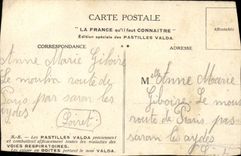 CARTE POSTALE
"LA FRANCE qu'il faut CONNAITRE"
Edition spéciale des PASTILLES VALDA
Correspondance
ADRESSE
Affranchir
Anne Marie
Giboire Le
moulin route de
Paris par saron les
aydes
Poiret
M Anne Marie
Giboire Le mou
route de Paris, par
saron les aydes
N.-B. — Les PASTILLES VALDA préviennent
et combattent efficacement toutes les maladies des
VOIES RESPIRATOIRES.
en BOITES portant le nom VALDA